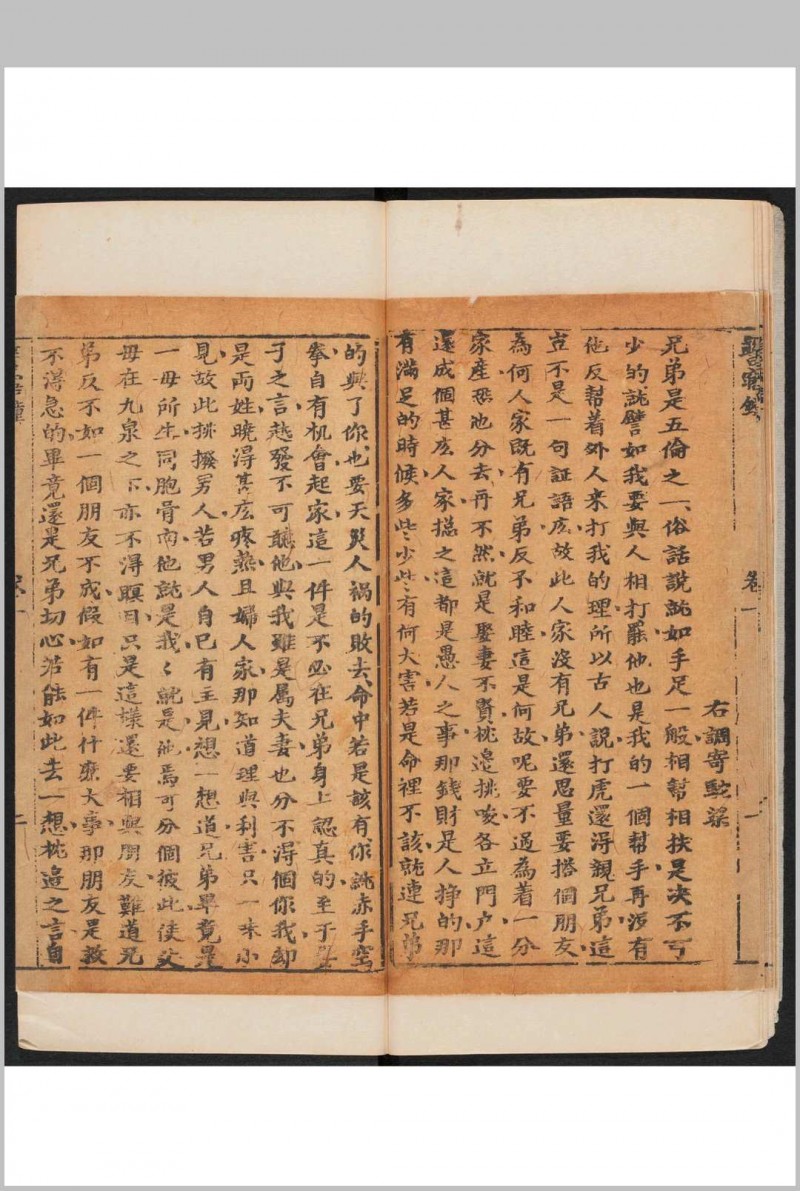 卷一
一
右調寄駝梁
兄弟是五倫之一俗話說就如手足一般相幫相扶是决不可
少的就譬如我要與人相打罷他也是我的一個幫手再沒有
他反幫着外人來打我的理所以古人説打虎還得親兄弟這
豈不是一句証語庅故此人家沒有兄弟還思量要搭個朋友
為何人家既有兄弟反不和睦這是何故呢要不過為着一分
家產恐他分去再不然就是娶妻不賢枕邉挑唆各立門户這
還成個甚庅人家搃之這都是愚人之事那錢財是人掙的那
有滿足的時候多些少些有何大害若是命裡不該就連兄弟
的與了你也要天災人禍的敗去命中若是該有你就赤手空
拳自有机會起家這一件是不必在兄弟身上認真的至于妻
子之言越發不可聽他與我雖是属夫妻也分不得個你我却
是両姓曉得甚庅疼熱且婦人家那知道理與利害只一味小
見故此挑撥男人若男人自己有主見想一想道兄弟畢竟是
一母所生同胞骨肉他就是我〻就是他焉可分個彼此使父
母在九泉之下亦不得瞑目只是這樣還要相與朋友難道兄
弟反不如一個朋友不成假如有一件什麽大事那朋友是救
不得急的畢竟還是兄弟切心若能如此去一想枕邉之言自